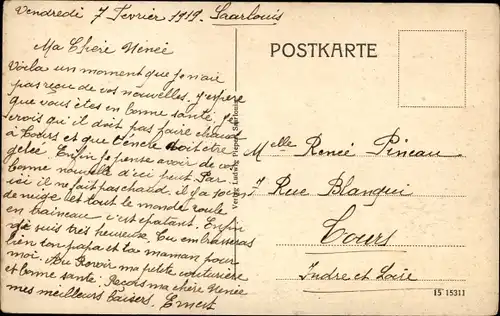 Vendredi 7 Fevrier 1919. Saarlouis
Ma Chère Nénée
Voila un moment que je n'ai
pas reçue de vos nouvelles. J'espère
que vous êtes en bonne santé. Je
crois qu'il doit pas faire chaud
à Tours et que l'encre doit être
gelée. Enfin je pense avoir de vos
bonne nouvelle d'ici peut. Par
ici il ne fait pas chaud. il y a 10 cm
de neige et tout le monde roule
en traineau c'est épatant. Enfin
je suis très heureux. Tu embrasseras
bien ton papa et ta maman pour
moi. Au Revoir ma petite couturière
et bonne santé. Reçois ma chère Nénée
mes meilleurs baisers. Ernest
POSTKARTE
Verlag Ludwig Pieper, Saarlouis
Melle Renée Pineau
7 Rue Blanqui
Tours
Indre et Loire
15 15311